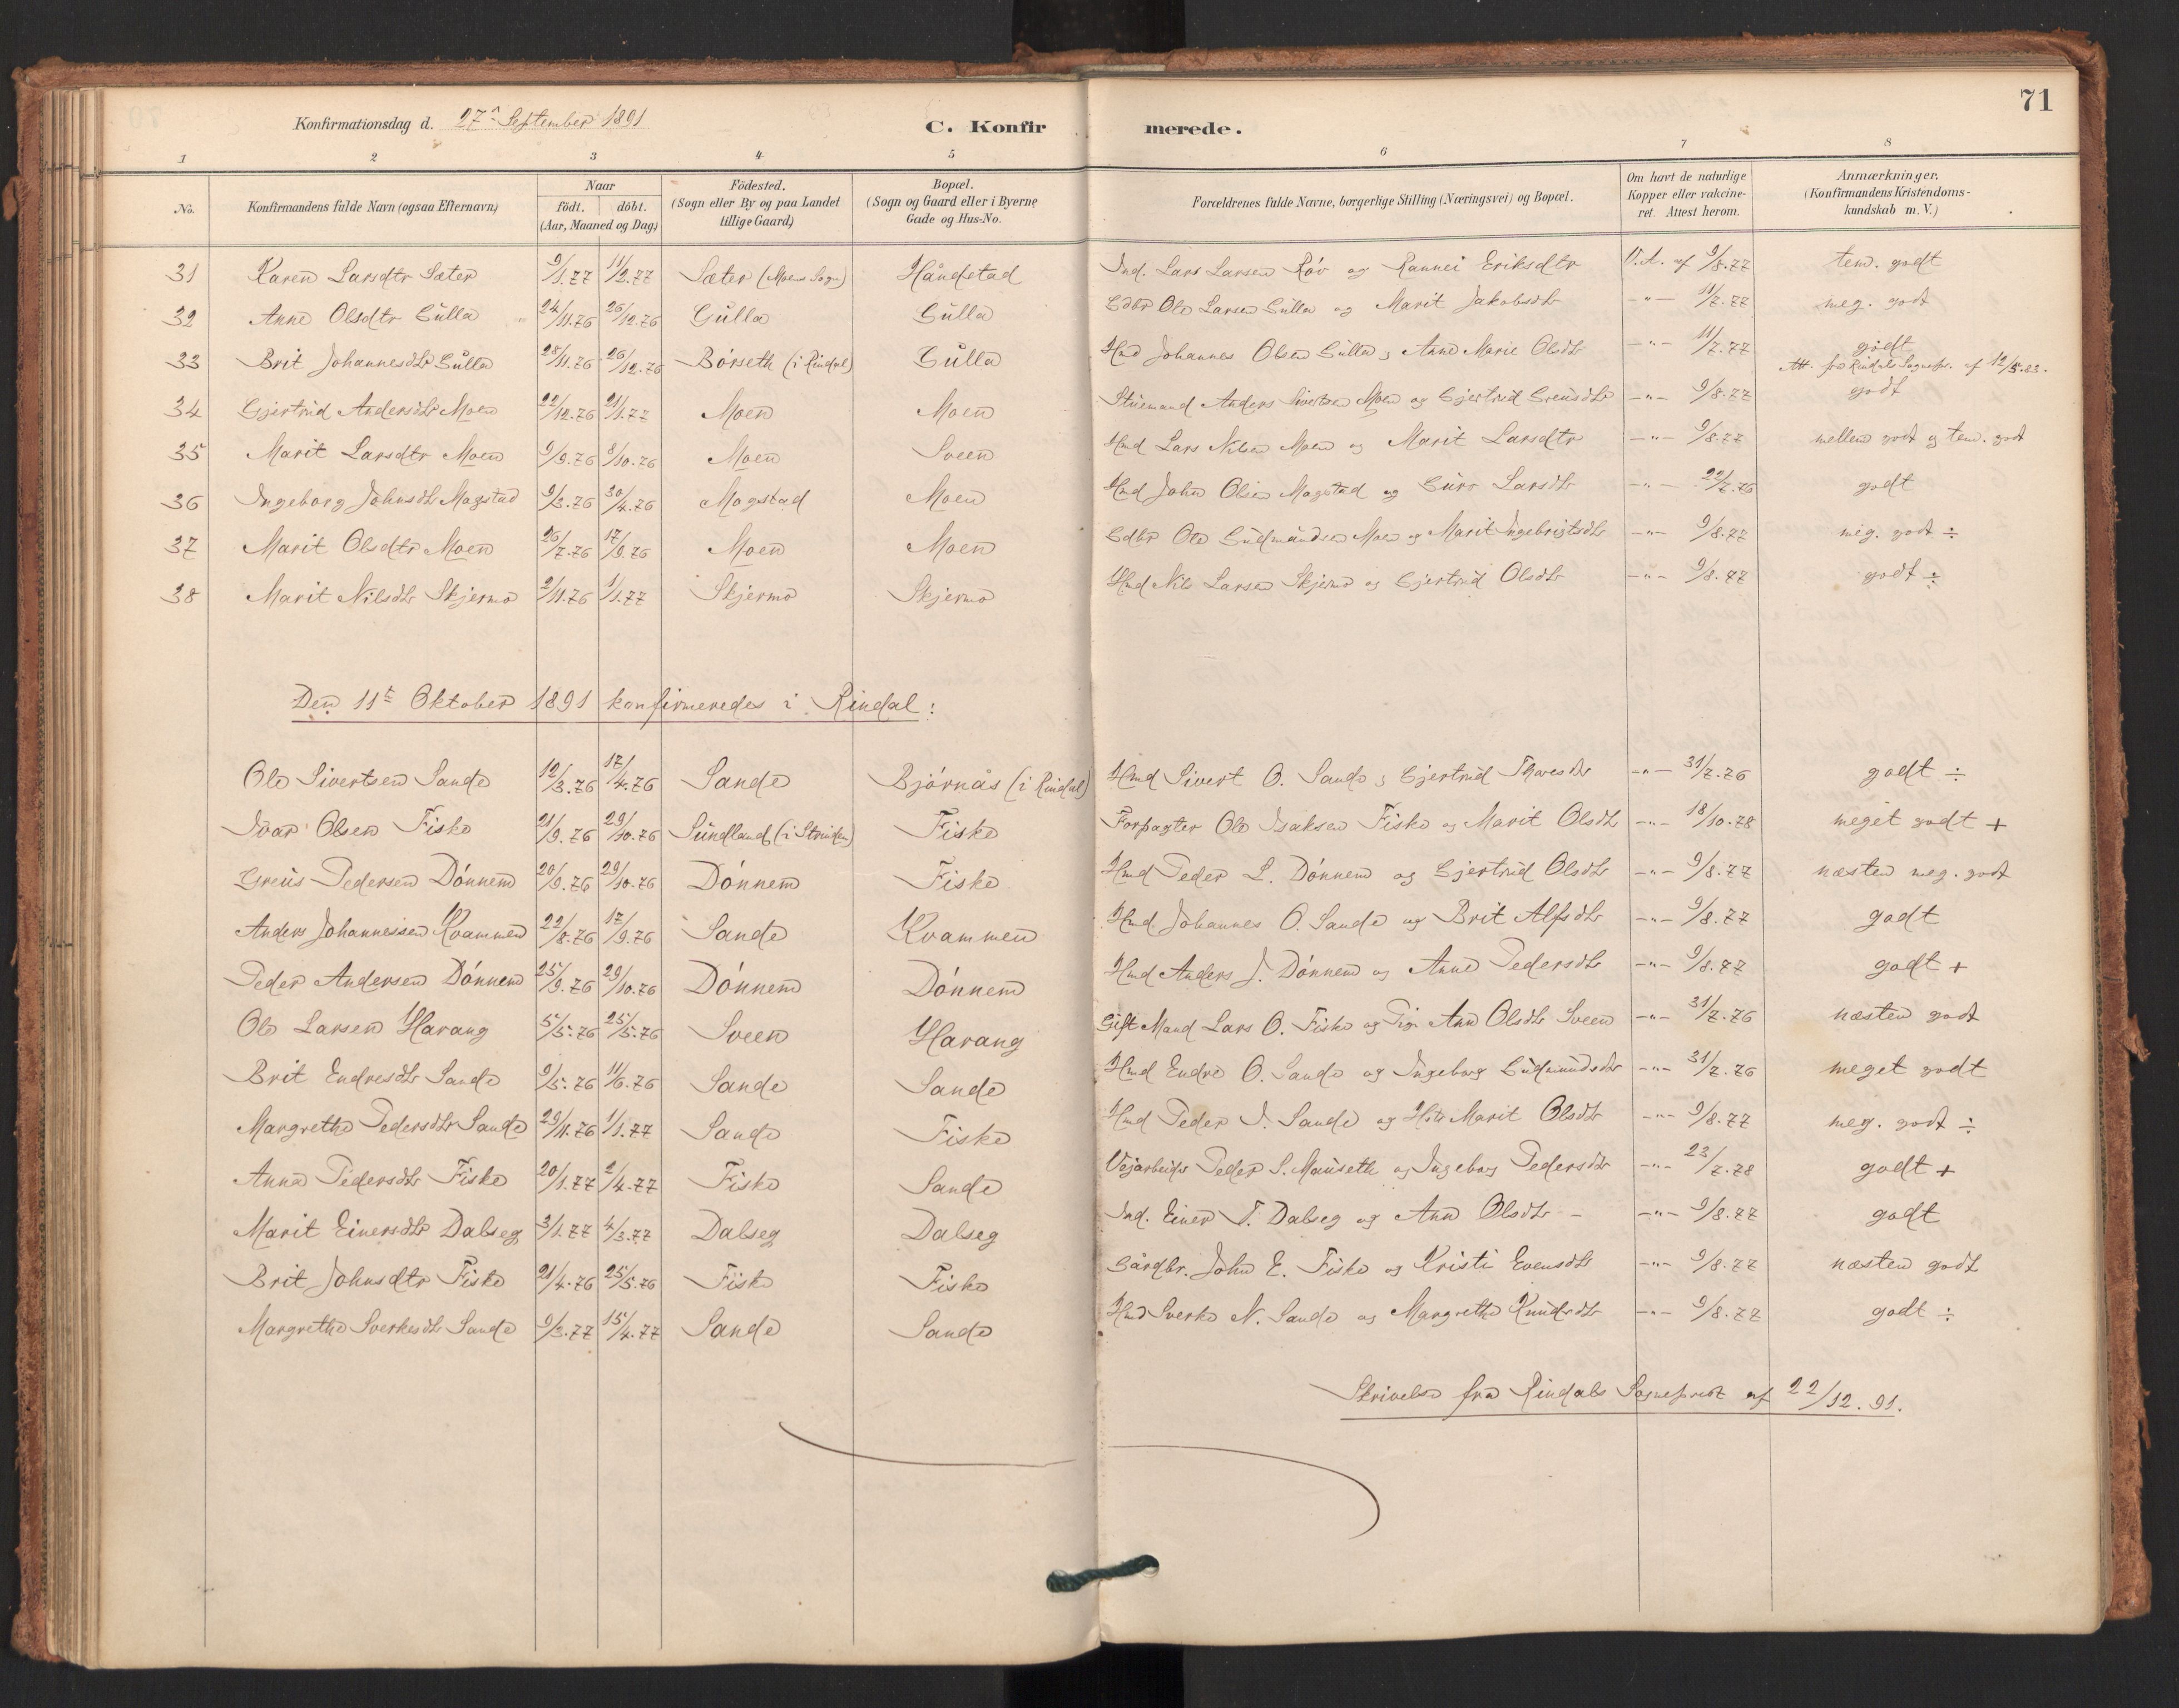 71
Konfirmationsdag d. 27de September 1891 C. Konfirmerede.
1 2 3 4 5 6 7 8
No. Konfirmandens fulde Navn (ogsaa Efternavn) Naar födt. döbt. (Aar, Maaned og Dag.) Födested. (Sogn eller By og paa Landet tillige Gaard) Bopæl. (Sogn og Gaard eller i Byerne Gade og Hus-No. Forældrenes fulde Navne, borgerlige Stilling (Næringsvei) og Bopæl. Om havt de naturlige Kopper eller vakcineret. Attest herom. Anmærkninger. (Konfirmandens Kristendomskundskab m. V.)
31 Karen Larsdtr Sæter 9/1.77 11/2.77 Sæter (Moens Sogn) Håndstad Ind. Lars Larsen Røv og Rannei Eriksdtr V.A. af 9/8.77 tem. godt
32 Anne Olsdtr Gulla 24/11.76 26/12.76 Gulla Gulla Gdbr Ole Larsen Gulla og Marit Jakobsdtr -"- 11/7.77 meg. godt
33 Brit Johannesdtr Gulla 28/11.76 26/12.76 Börseth (i Rindal) Gulla Hmd Johannes Olsen Gulla og Anne Marie Olsdtr -"- 11/7.77 godt
Att. fra Rindals Sognepr. af 12/5.83.
34 Gjertrud Andersdtr Moen 22/12.76 21/1.77 Moen Moen Stuemand Anders Sivertsen Moen og Gjertrud Greusdtr -"- 9/8.77 godt
35 Marit Larsdtr Moen 9/9.76 8/10.76 Moen Sveen Hmd Lars Nilsen Moen og Marit Larsdtr -"- 9/8.77 mellem godt og tem. godt
36 Ingeborg Johnsdtr Magstad 9/3.76 30/4.76 Mogstad Moen Hmd John Olsen Magstad og Guro Larsdtr -"- 22/7.76 godt
37 Marit Olsdtr Moen 26/7.76 17/9.76 Moen Moen Gdbr Ole Gudmundsen Moen og Marit Ingebrigtsdtr -"- 9/8.77 meg. godt ÷
38 Marit Nilsdtr Skjermo 2/11.76 1/1.77 Skjermo Skjermo Hmd Nils Larsen Skjermo og Gjertrud Olsdtr -"- 9/8.77 godt ÷
Den 11te Oktober 1891 konfirmeredes i Rindal:
Ole Sivertsen Sande 12/3.76 17/4.76 Sande Bjørnås (i Rindal) Hmd Sivert O. Sande og Gjertrud Thoresdtr -"- 31/7.76 godt ÷
Ivar Olsen Fiske 21/9.76 29/10.76 Sundland (i Strinden) Fiske Forpagter Ole Isaksen Fiske og Marit Olsdtr -"- 18/10.78 meget godt +
Greus Pedersen Dönnem 20/9.76 29/10.76 Dönnem Fiske Hmd Peder L. Dönnem og Gjertrud Olsdtr -"- 9/8.77 næsten meg. godt
Anders Johannessen Kvammen 22/8.76 17/9.76 Sande Kvammen Hmd. Johannes O. Sande og Brit Alfsdtr -"- 9/8.77 godt
Peder Andersen Dönnem 25/9.76 29/10.76 Dönnem Dönnem Hmd Anders J. Dönnem og Anne Pedersdtr -"- 9/8.77 godt +
Ole Larsen Harang 5/5.76 25/5.76 Sveen Harang Gift Mand Lars O. Fiske og Pige Ann Olsdtr Sveen -"- 31/7.76 næsten godt
Brit Endresdtr Sande 9/5.76 11/6.76 Sande Sande Hmd Endre O. Sande og Ingeborg Gudmundsdtr -"- 31/7.76 meget godt
Margrethe Pedersdtr Sande 29/11.76 1/1.77 Sande Fiske Hmd Peder I. Sande og Hstr Marit Olsdtr -"- 9/8.77 meg. godt ÷
Anna Pedersdtr Fiske 20/1.77 2/4.77 Fiske Sande Vejarbeider Peder S. Mauseth og Ingeborg Pedersdtr -"- 23/7.78 godt +
Marit Einersdtr Dalseg 3/1.77 4/3.77 Dalseg Dalseg Ind. Einer T. Dalseg og Ann Olsdtr - -"- 9/8.77 godt
Brit Johnsdtr Fiske 21/4.76 25/5.76 Fiske Fiske Gårdbr. John E. Fiske og Kristi Evensdtr -"- 9/8.77 næsten godt
Margrethe Sverkesdtr Sande 9/3.77 15/4.77 Sande Sande Hmd Sverke N. Sande og Margrethe Knudsdtr -"- 9/8.77 godt ÷
Skrivelse fra Rindals Sogneprest af 22/12.91.